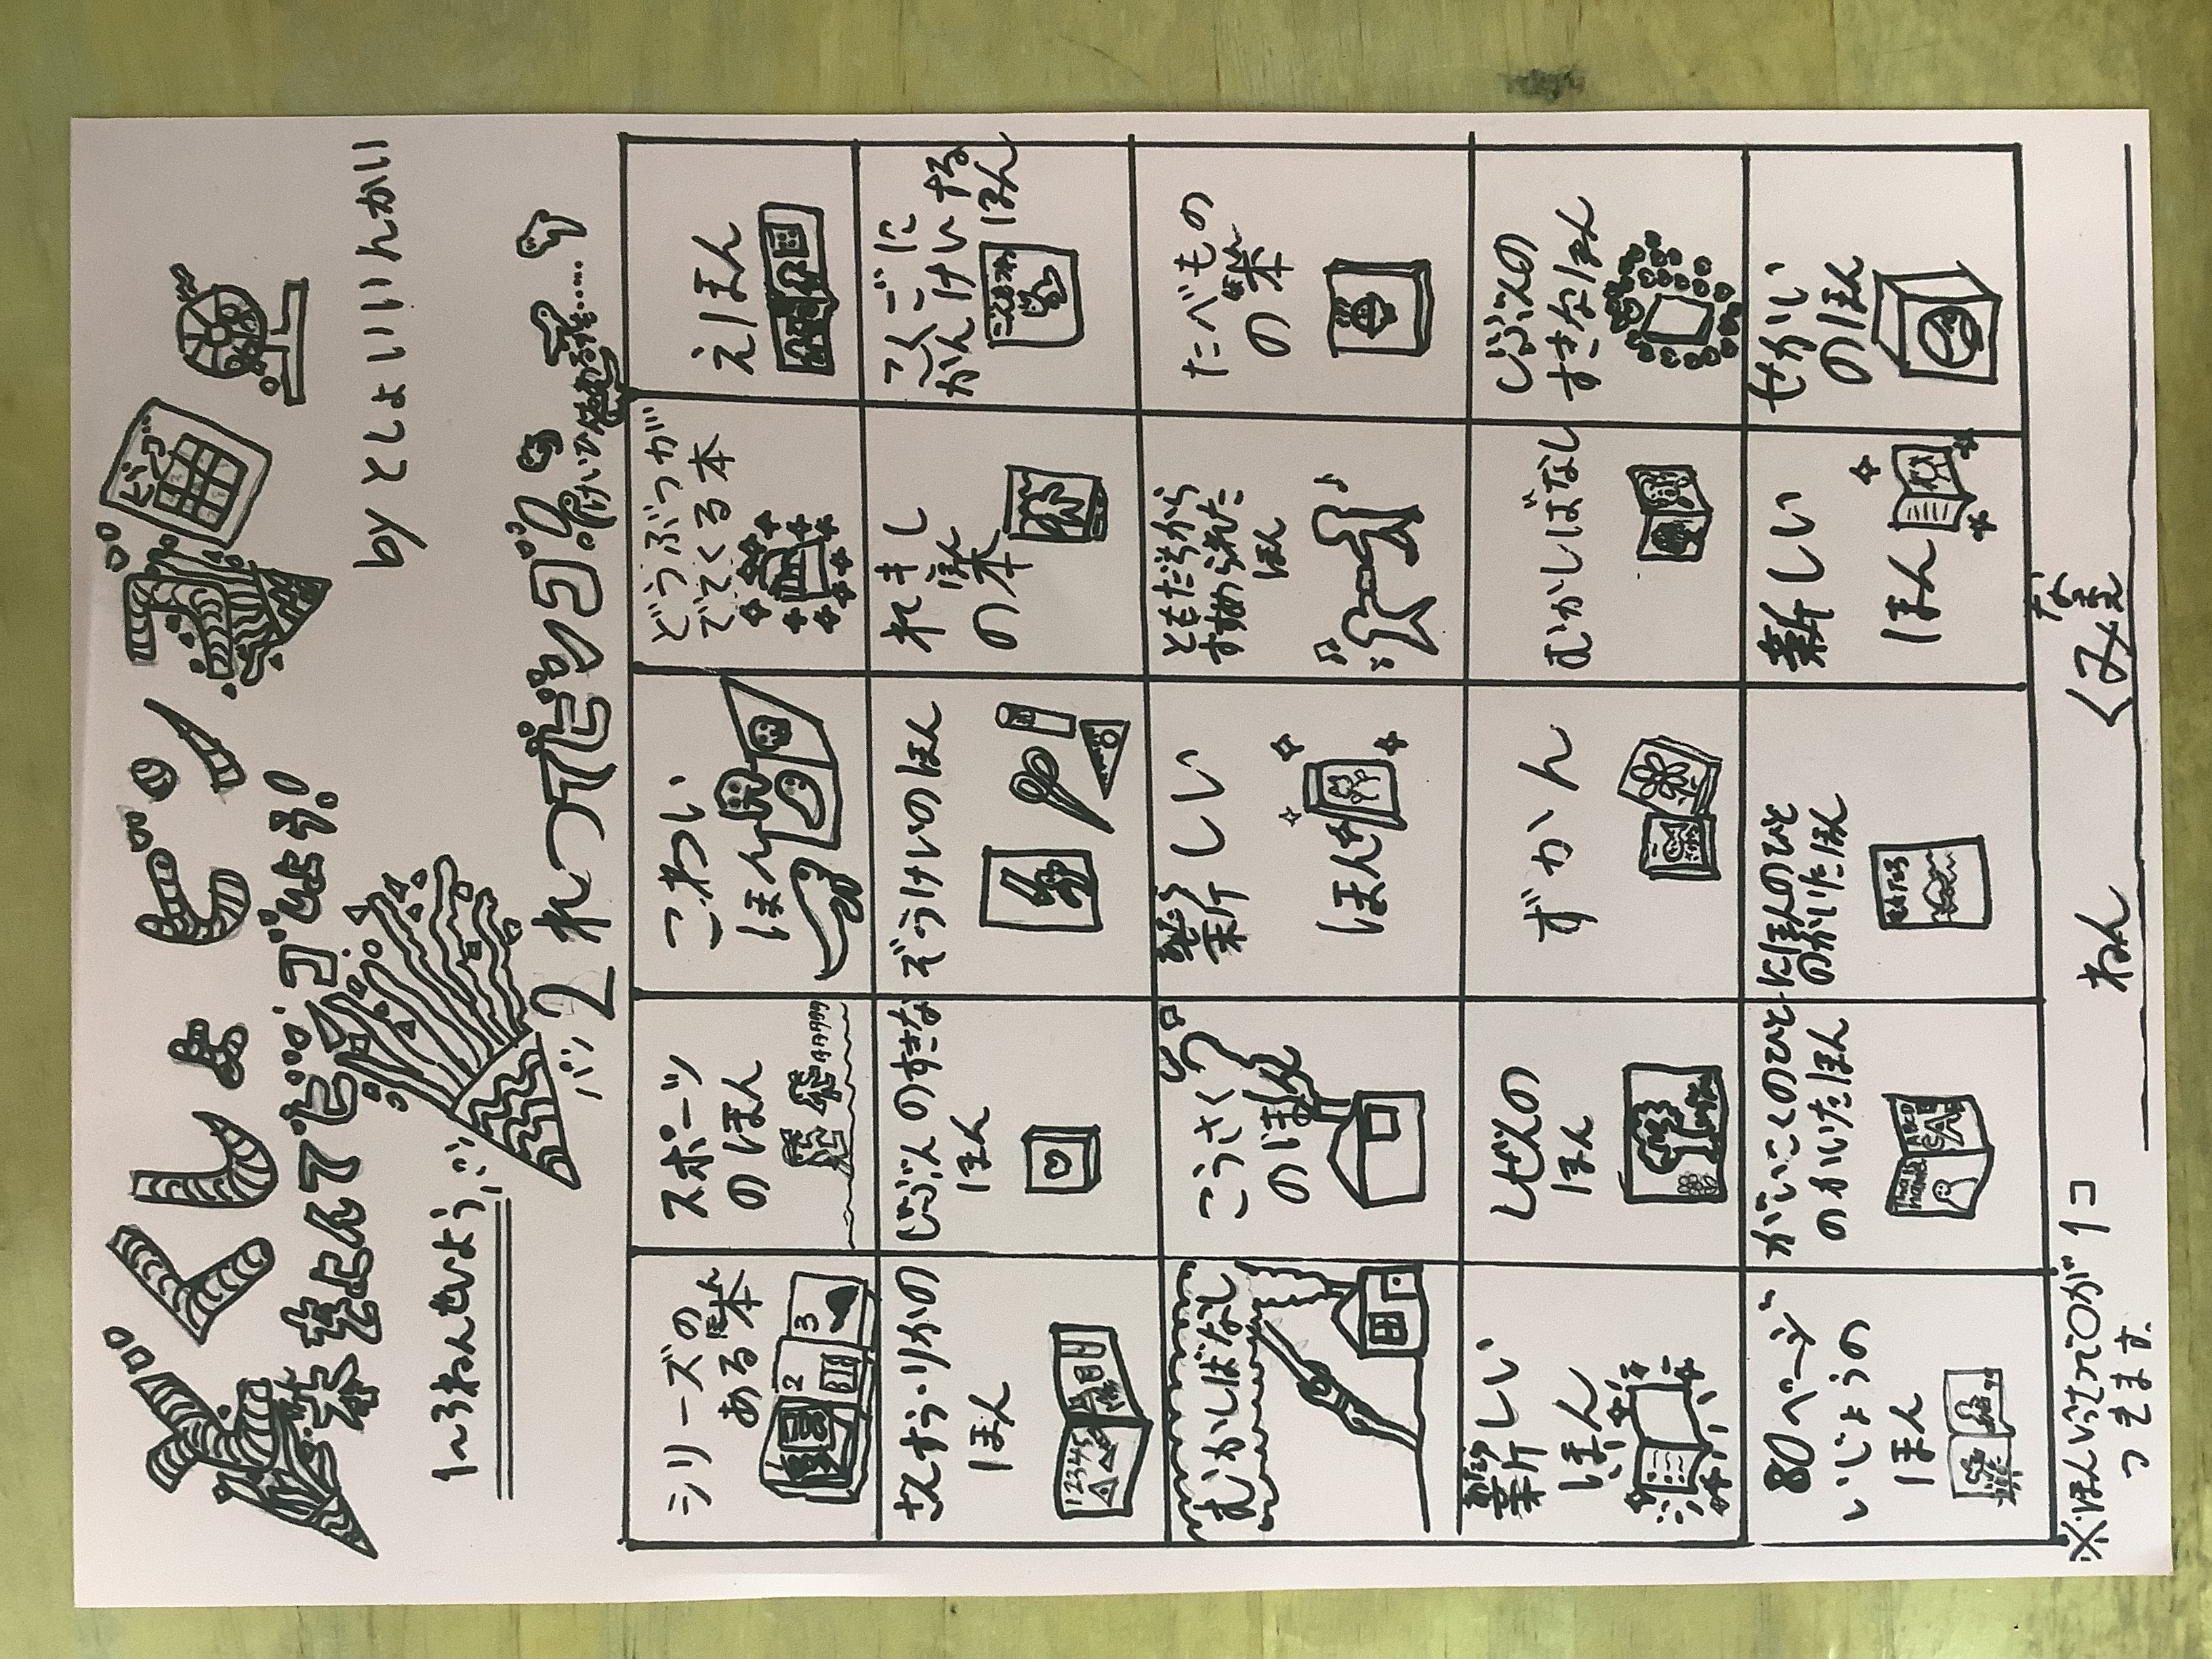 どくしょビンゴ
ビンゴ
本をよんでビンゴしよう!
by としょいいんかい
1~3ねんせいよう
2れつでビンゴ!
シリーズの
ある本
ほん
2
3
スポーツ
のほん
こわい
ほん
どうぶつが
でてくる本
えほん
さんすう・りかの
ほん
12345
じぶんのすきな
ほん
ぞうけいのほん
れきし
の本
ほん
こくごに
かんけいする
ほん
むかしばなし
こうさく
のほん
新しい
あたら
ほん
ともだちから
すすめられた
ほん
たべもの
の本
ほん
新しい
あたら
ほん
しぜんの
ほん
ずかん
むかしばなし
じぶんの
すきなほん
80ページ
いじょうの
ほん
がいこくのひと
のかいたほん
にほんのひと
のかいたほん
新しい
ほん
せかい
のほん
※ほんいっさつで○が1コ
つきます。
ねん
くみ
なまえ